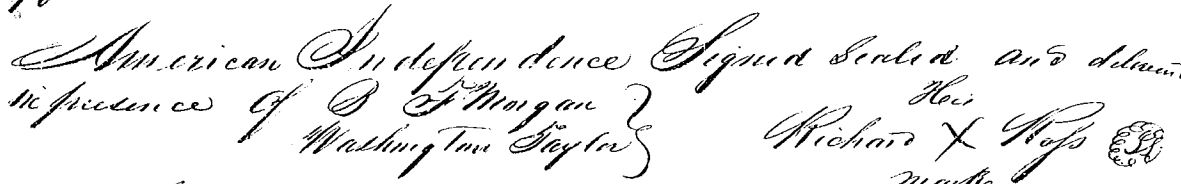 American Independence Signed Sealed and deliverd
in presence of B F Morgan }
His
Washington Taylor } Richard X Ross
mark